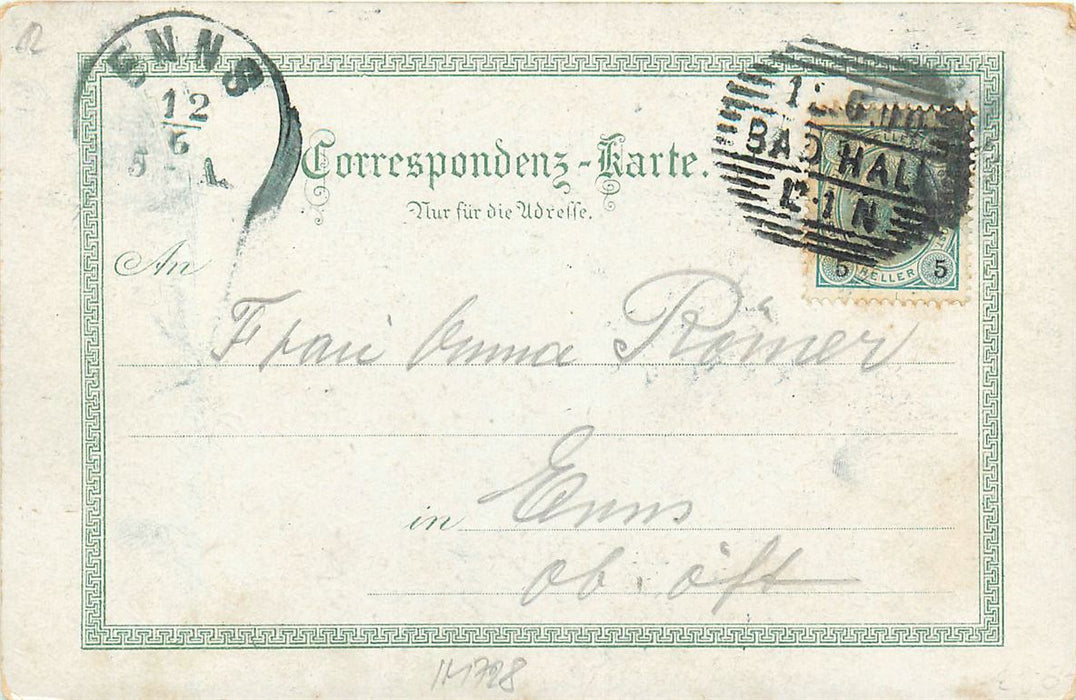 ENNS
12
6
5 - 1
BAD HALL
Correspondenz-Karte.
Nur für die Adresse.
5 HELLER 5
An
Frau Anna Römer
in Enns
ob. öst
H1728